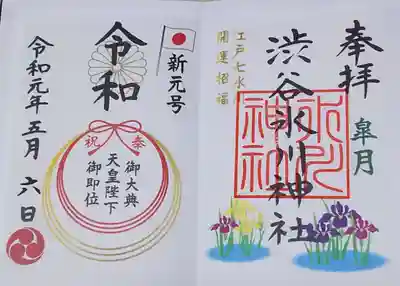 奉拝
皐月
渋谷氷川神社
氷川
神社
江戸七氷川
開運招福
新元号
令和
祝
奉
御大典
天皇陛下
御即位
令和元年五月六日